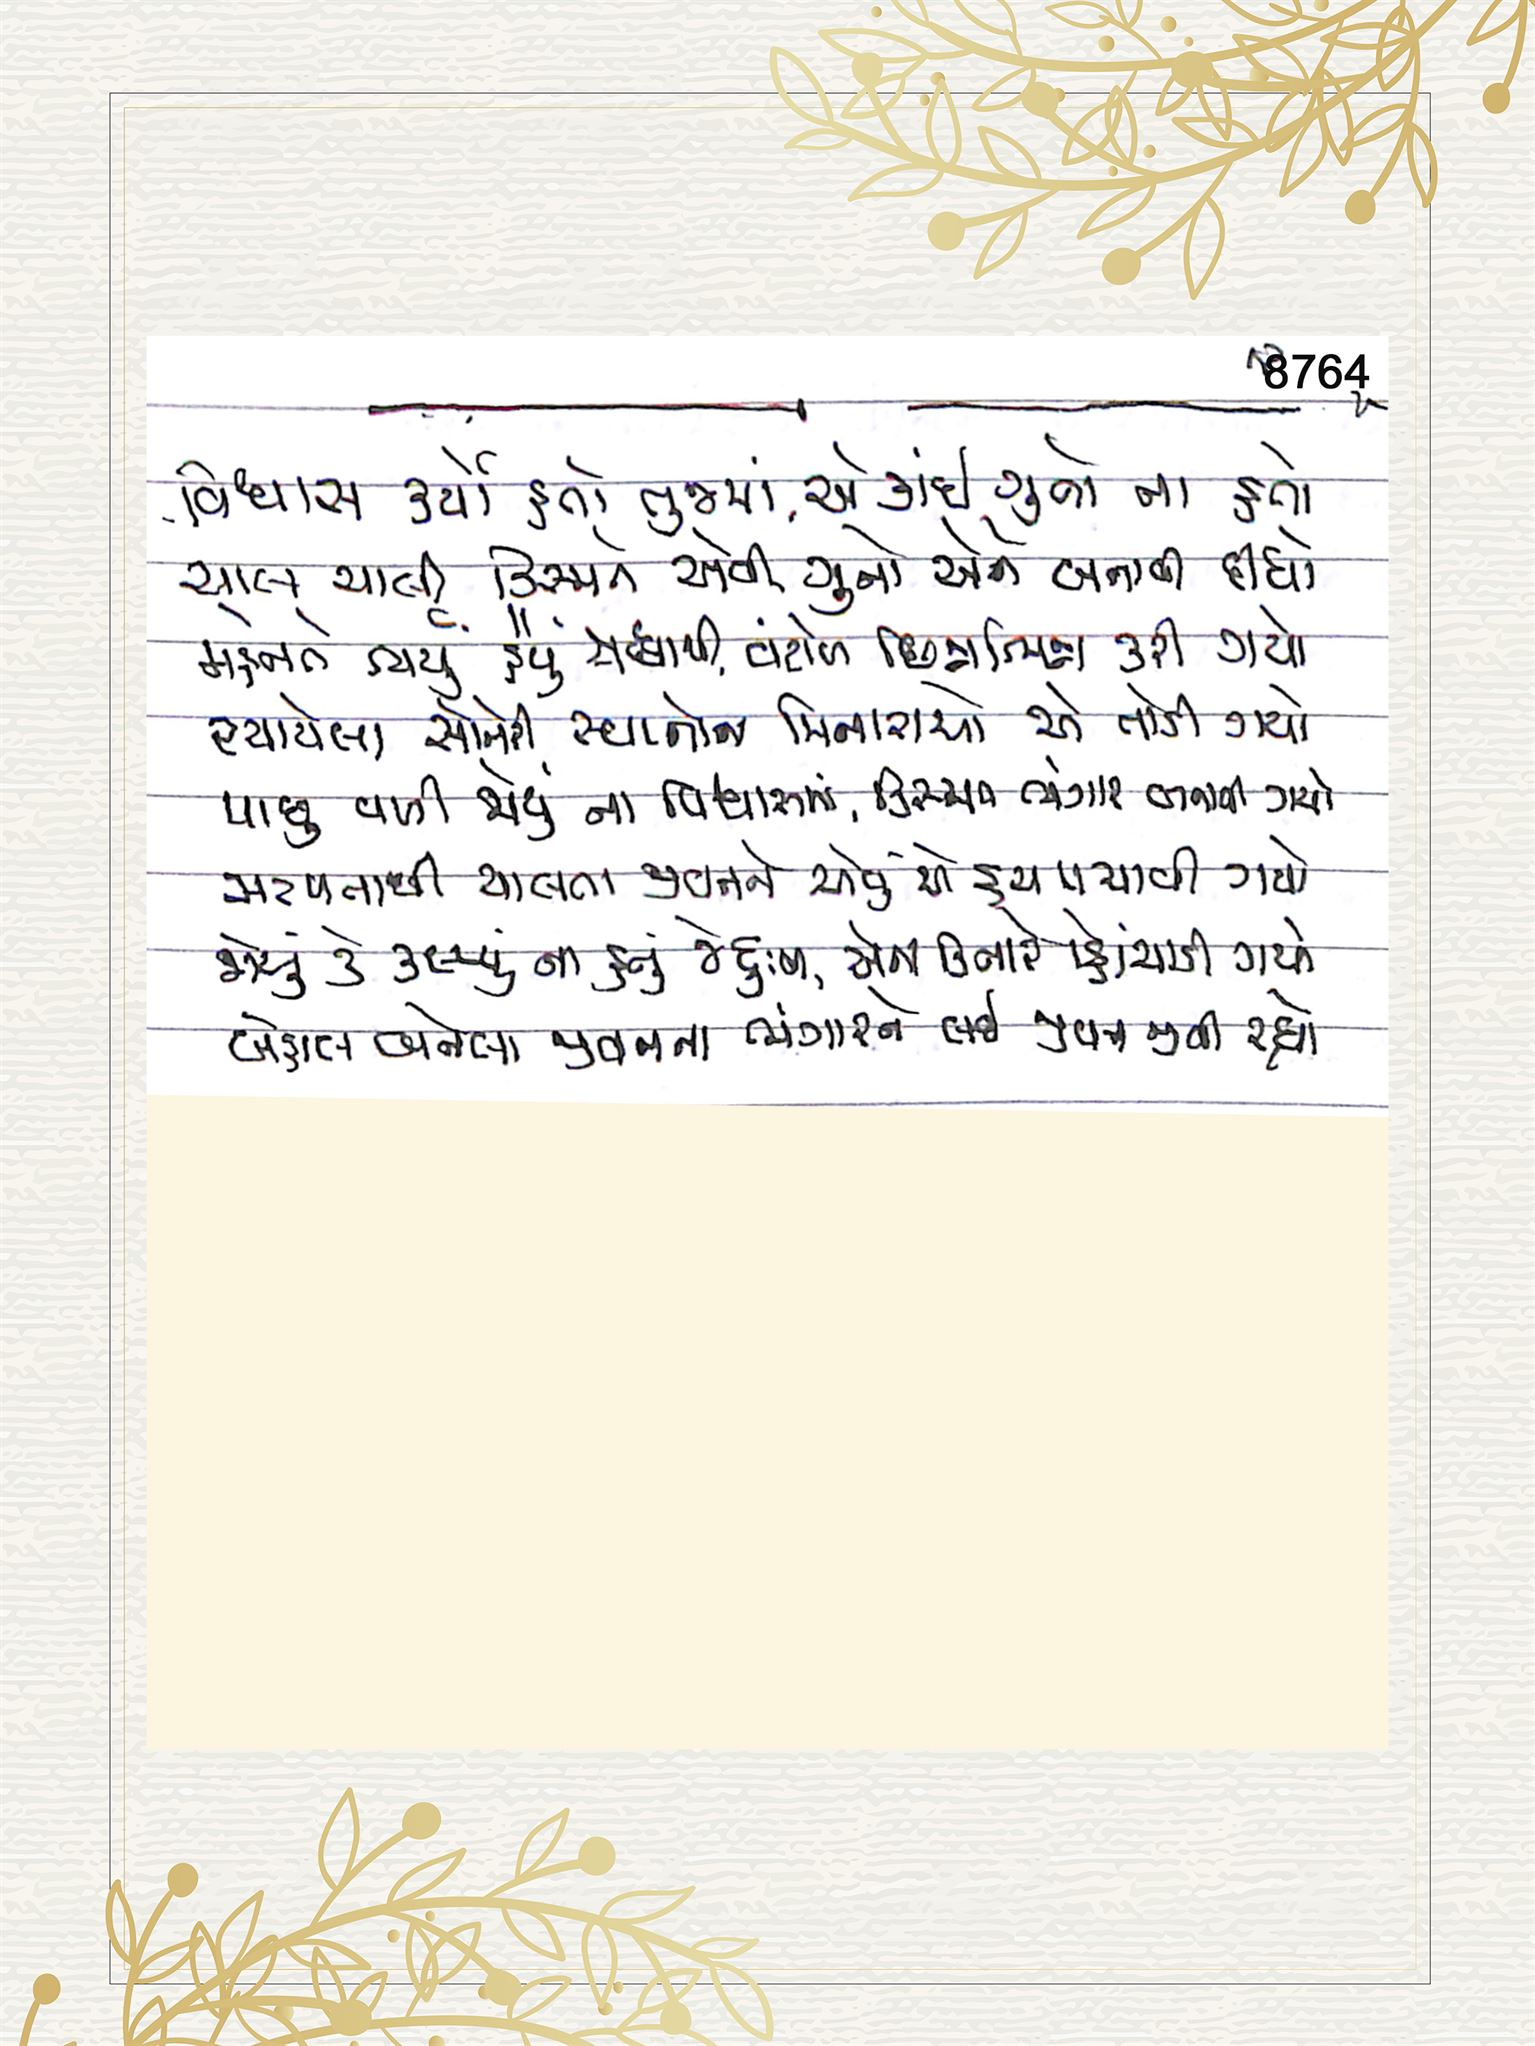 8764
વિશ્વાસ કર્યો હતો તુજમાં, એ કાંઈ ગુનો ના હતો
ચાલ ચાલી કિસ્મતે એવી, ગુનો એને બનાવી દીધો
મહેનતે ર્ચ્યું હૈયું, વંટોળ છિન્નભિન્ન કરી ગયો
રચાયેલા સોનેરી સ્વપ્નોના મિનારાઓ એ તોડી ગયો
પાછું વળી જોયું ના વિશ્વાસમાં, કિસ્મત ભંગાર બનાવી ગયો
સરળતાથી ચાલતા જીવનને એવું એ હચમચાવી ગયો
જોયું કે કલ્પ્યું ના હતું જે દુઃખ, એના કિનારે પહોંચાડી ગયો
બેહાલ બનેલા જીવનના ભંગારને લઈ જીવન જીવી રહ્યો